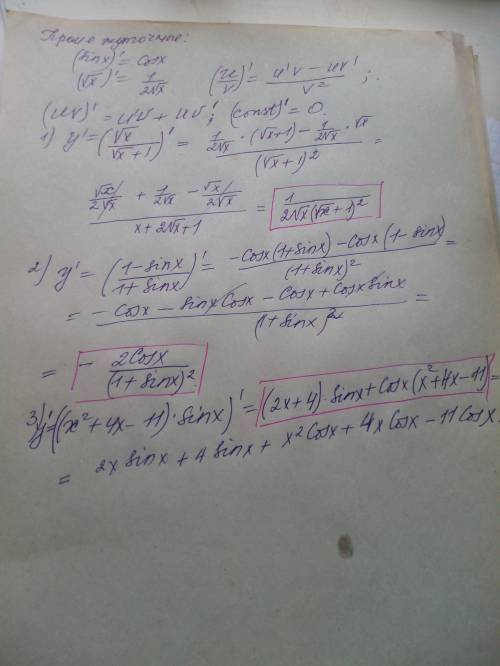 Промежуточные:
(sinx)' = cosx
(√x)' = 1/(2√x)   (u/v)' = (u'v - uv')/v² ;
(uv)' = u'v + uv' ; (const)' = 0.
1) y' = (√x/(√x+1))' = (1/(2√x) · (√x+1) - 1/(2√x) · √x)/(√x+1)² =
(√x/(2√x) + 1/(2√x) - √x/(2√x))/(x+2√x+1) = 1/(2√x(√x+1)²)
2) y' = ((1-sinx)/(1+sinx))' = (-cosx(1+sinx) - cosx(1-sinx))/(1+sinx)² =
= (-cosx - sinx cosx - cosx + cosx sinx)/(1+sinx)² =
= - 2cosx/(1+sinx)²
3) y' = ((x²+4x-11)·sinx)' = (2x+4)·sinx + cosx(x²+4x-11) =
= 2x sinx + 4 sinx + x² cosx + 4x cosx - 11 cosx